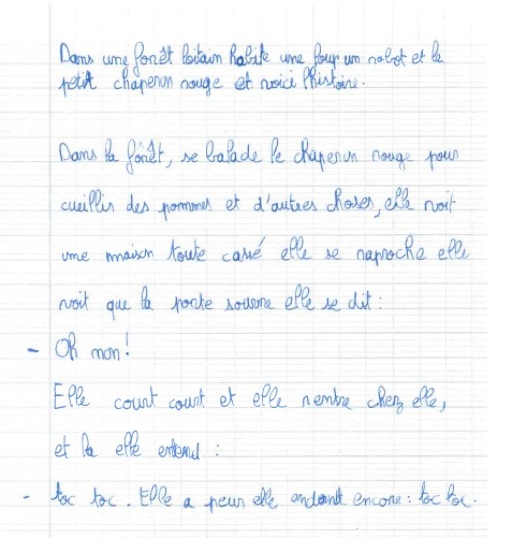 Dans une forêt loitain habite une loup un robot et le
petit chaperon rouge et voici l'histoire.
Dans la fôrêt, se balade le chaperon rouge pour
cueillir des pommes et d'autres choses, elle voit
une maison toute cassé elle se raproche elle
voit que la porte souvre elle se dit :
- Oh non !
Elle court court et elle rentre chez elle,
et la elle entend :
- toc toc. Elle a peur elle endant encore : toc toc.